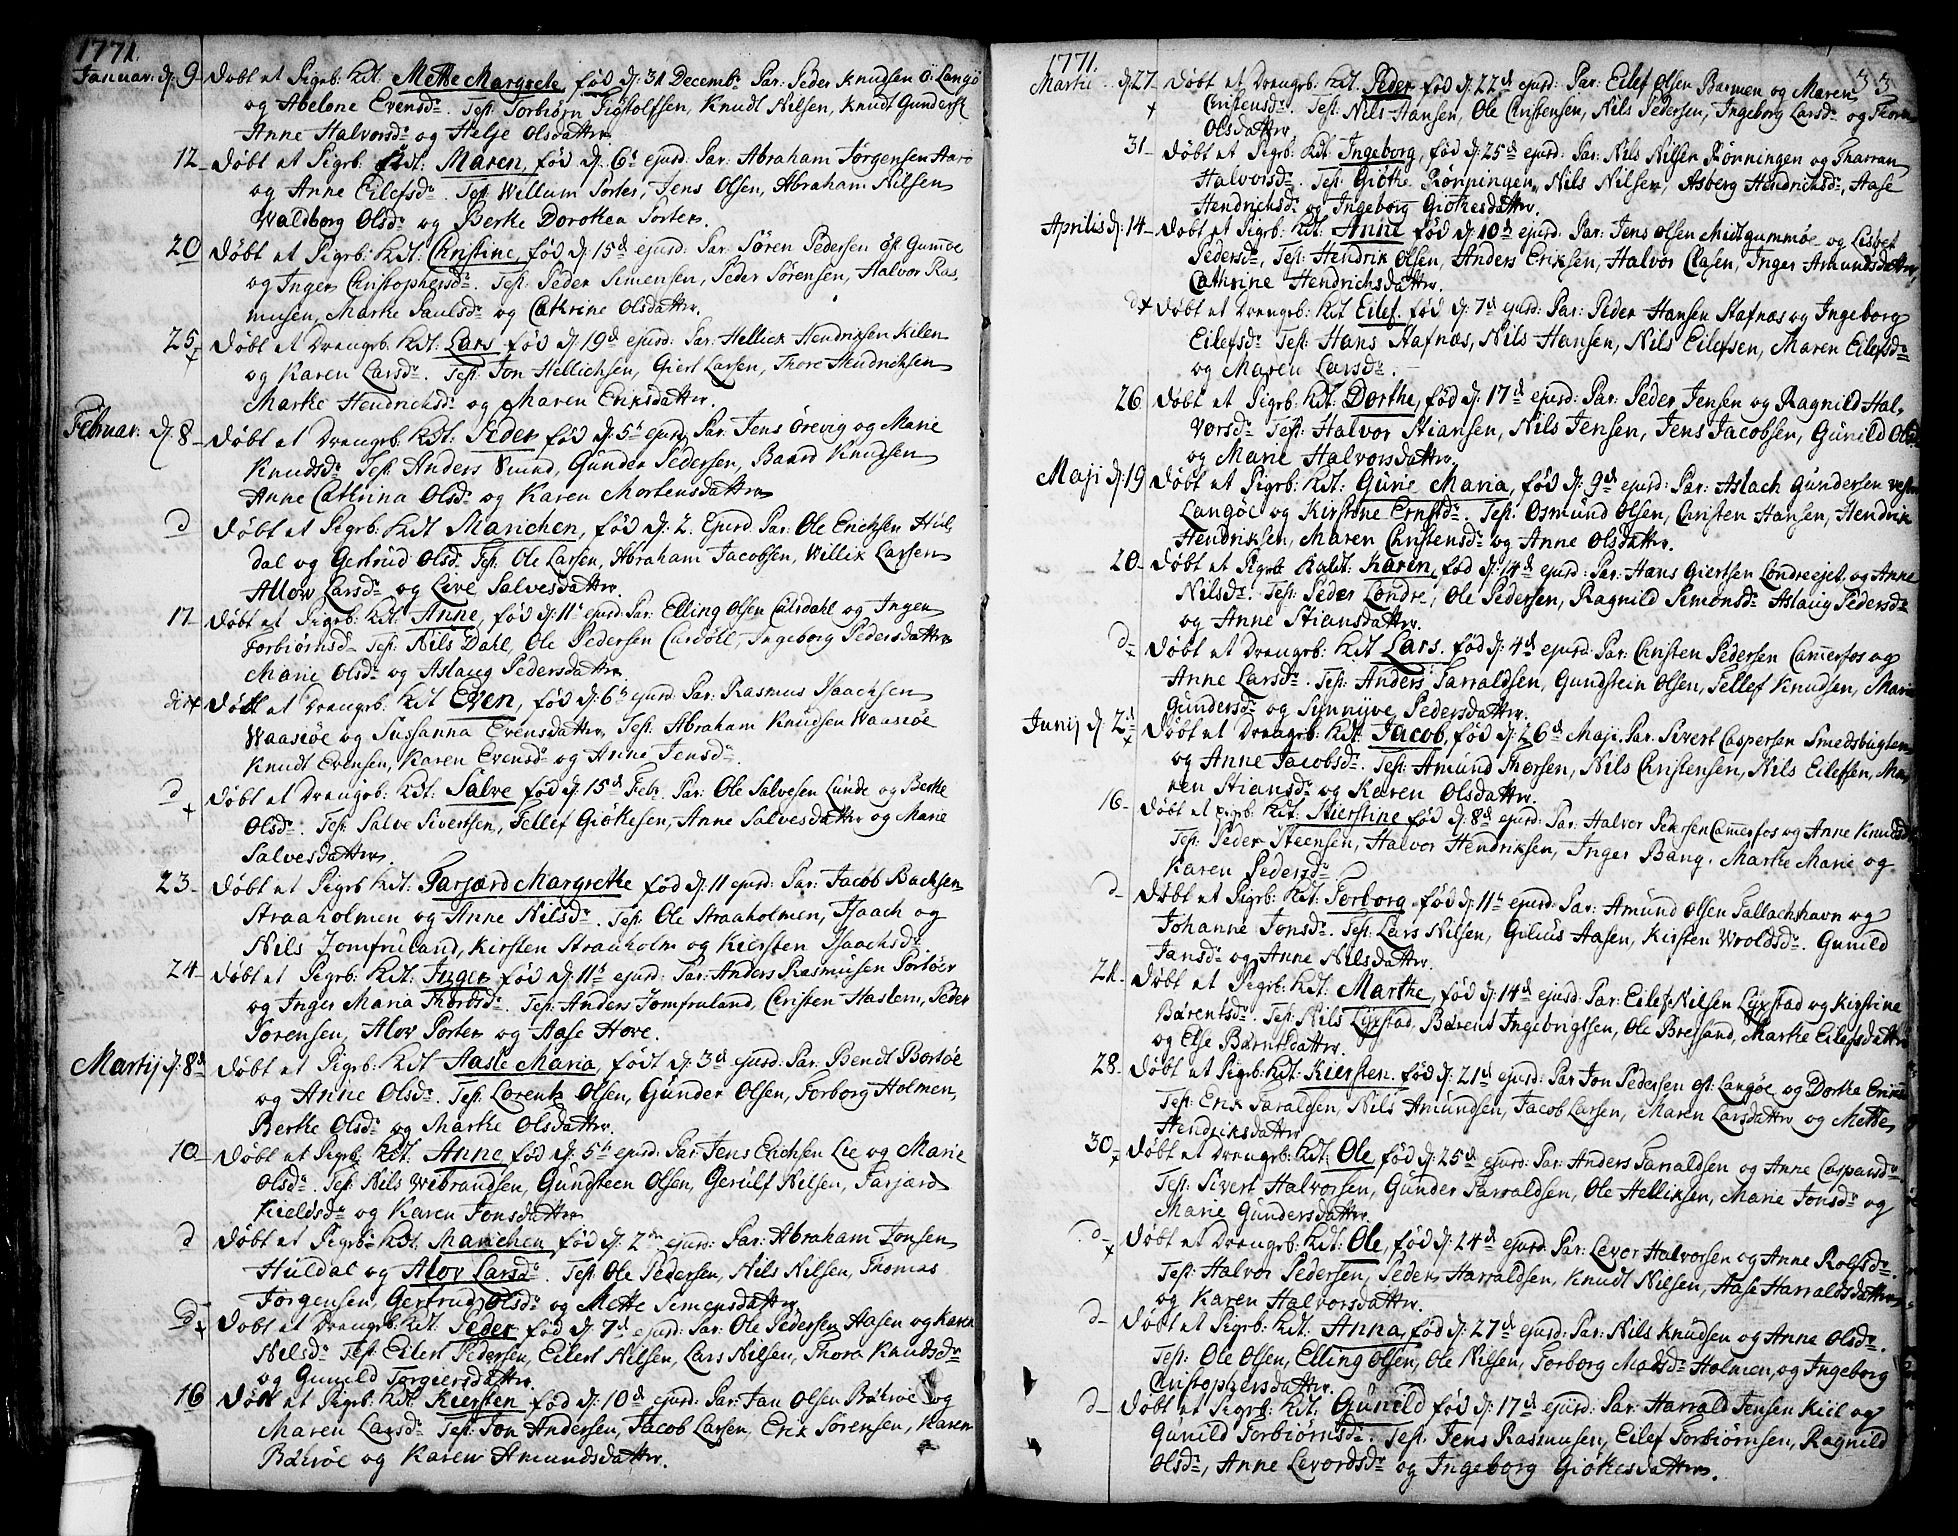 1771.
Januar: d: 9 Døbt et Pigeb: kdt: Mette Margrete, fød d: 31 Decembr Par: Peder Knudsen Ö: Langö
og Abelone Evensdr. Test: Torbiørn Tistolfsen, Knudt Nilsen, Knudt Gunders:
Anne Halvorsdr og Helje Olsdattr.
12 Døbt et Pigeb: kdt: Maren, fød d: 6t ejusd: Par: Abraham Jørgensen Aarö
og Anne Eilefsdr. Test: Willum Porter, Jens Olsen, Abraham Nilsen
Waldborg Olsdr og Berthe Dorothea Porter.
20 Døbt et Pigeb: kdt: Christine, fød d: 15de ejusd: Par: Søren Pedersen öst: Gumöe
og Inger Christophersdr. Test: Peder Simensen, Peder Sørensen, Halvor Ras-
musen, Marthe Paulsdr og Cathrine Olsdattr.
25 Døbt et Drengeb: kdt: Lars fød d: 19de ejusd: Par: Hellick Hendriksen Kilen
og Karen Larsdr. Test: Jon Hellichsen, Giert Larsen, Thore Hendricksen
Marthe Hendrichsdr og Maren Eriksdattr.
Februar: d: 8 Døbt et Drengeb: kdt: Peder fød d: 5t ejusd Par: Jens Örevig og Marie
Knudsdr. Test: Anders Smed, Gunder Pedersen, Baard Knudsen
Anne Cathrina Olsdr og Karen Mortensdattr
d Døbt et Pigeb: kdt Marichen, fød d: 2. Ejusd Par: Ole Erichsen Hul-
dal og Gertrud Olsd. Test: Ole Larsen, Abraham Jacobsen, Willix Larsen
Allow Larsdr og Live Salvesdattr.
17 Døbt et Pigeb: kdt: Anne, fød d: 11t ejusd: Par: Elling Olsen Calsdahl og Inger
Torbiørnsdr Test: Nils Dahl, Ole Pedersen Cardöll, Ingeborg Pedersdattr
Marie Olsdr og Aslaug Pedersdattr.
dito Døbt et Drengeb: kdt Even, fød d: 6t ejusd: Par: Rasmus Isaachsen
Waasöe og Sussanna Evensdattr, Test: Abraham Knudsen Waasöe
Knudt Evensen, Karen Evensdr og Anne Jensdr.
d Døbt et Drengeb: kdt: Salve fød d: 15de Febr. Par: Ole Salvesen Lunde og Berthe
Olsdr. Test: Salve Sivertsen, Tellef Giökesen, Anne Salvesdattr og Marie
Salvesdattr.
23 Døbt et Pigeb kdt: Tarjærd Margrethe fød d: 11 ejusd: Par: Jacob Bachsen
Straaholmen og Anne Nilsdr. Test: Ole Straaholmen, Isaach og
Nils Jomfruland, Kirsten Straaholm og Kiersten Isaachsdr.
24 Døbt et Pigeb: kdt: Inger fød d: 11t ejusd: Par: Anders Rasmusen Portöer
og Inger Maria Thorbsdr. Test: Anders Jomfruland, Christen Haslem, Peder
Sørensen, Alov Porter og Aase Hove.
Martij d: 8d Døbt et Pigeb: kdt Aasle Maria født d: 3de ejusd: Par: Bendt Bortöe
og Anne Olsdr. Test: Lorentz Olsen, Gunder Olsen, Torborg Holmen,
Berthe Olsdr og Marthe Olsdattr.
10 Døbt et Pigeb kdt: Anne fød d: 5t ejusd: Par: Jens Erichsen Lie og Marie
Olsdr. Test: Nils Webrandsen, Gundsteen Olsen, Gerulf Nilsen, Tarjærd
Kieldsdr og Karen Jonsdattr
d Døbt et Pigeb: kdt: Marichen fød d: 2den ejusd: Par: Abraham Jonsen
Huldal og Alov Larsdr. Test: Ole Pedersen, Nils Nilsen, Thomas
Jørgensen, Gertrud Olsdr og Mette Simensdattr
d Døbt et Drengeb: kdt: Peder fød d: 7de ejusd: Par: Ole Pedersen Aasen og Karen
Nilsdr Test: Eilert Pedersen, Eilert Nilsen, Lars Nilsen, Thora Knudsdr
og Gunild Torgiersdattr.
16 Døbt et Pigeb: kdt: Kiersten fød d: 10de ejusd: Par: Jan Olsen Bötöe og
Maren Larsdr Test: Jon Andersen, Jacob Larsen, Erik Sørensen, Karen
Bötöe og Karen Amundsdattr.
1771.
33
Martii d: 27 Døbt et Drengeb: kdt: Peder fød d: 22de ejusd: Par: Eilef Olsen Barmen og Maren
Christensdr. Test: Nils Hansen, Ole Christensen, Nils Pedersen, Ingeborg Larsdr og
Olsdattr.
31 Døbt et Pigeb: kdt Ingeborg, fød d: 25de ejusd: Par: Nils Nilsen Rönningen og Tharran
Halvorsdr. Test: Giöke Rönningen, Nils Nilsen, Asberg Hendrichsdr, Aase
Hendrichsdr og Ingeborg Giökesdattr.
Aprilis d: 14 Døbt et Pigeb: kdt: Anne fød d: 10de ejusd: Par: Jens Olsen Midtgummöe og Lisbet
Pedersdr, Test: Hendrik Olsen, Anders Eriksen, Halvor Clasen, Inger Asmundsdattr
Cathrine Hendrichsdattr.
d Døbt et Drengeb: kdt Eilef. fød d: 7de ejusd: Par: Peder Hansen Stafnæs og Ingeborg
Eilefsdr Test: Hans Stafnæs, Nils Hansen, Nils Eilefsen, Maren Eilefsdr
og Maren Larsdr.
26 Døbt et Pigeb: kdt: Dorthe, fød d: 17de ejusd: Par: Peder Jensen og Ragnild Hal-
vorsdr Test: Halvor Stiansen, Nils Jensen, Jens Jacobsen, Gunild Olsd
og Marie Halvorsdattr.
Maji d: 19 Døbt et Pigeb: kdt: Gune Maria, fød d: 9de ejusd: Par: Aslach Gundersen vestr
Langöe og Kirstine Ernstdr. Test: Osmund Olsen, Christen Hansen, Hendrik
Hendriksen, Maren Christensdr og Anne Olsdattr.
20 Døbt et Pigeb kaldt: Karen, fød d: 14de ejusd: Par: Hans Giertsen Londreejet og Anne
Nilsdr. Test: Peder Londre, Ole Pedersen, Ragnild Simonsdr Aslaug Pedersdr
og Anne Stiansdattr.
d Døbt et Drengeb: kdt Lars. fød d: 4de ejusd: Par: Christen Pedersen Cammerfos og
Anne Larsdr. Test: Anders Tarraldsen, Gundstein Olsen, Tellef Knudsen, Marie
Gundersdr og Synnyve Pedersdattr.
Junij d: 2d Døbt et Drengeb: kdt: Jacob, fød d: 26de Maji. Par: Sivert Caspersen Smedsbugten
og Anne Jacobsdr. Test: Amund Thorsen, Nils Christensen, Nils Eilefsen, Ma-
ren Stiansdr og Karen Olsdattr.
16 Døbt et Pigeb: kdt: Kierstine fød d: 8de ejusd: Par: Halvor Pedersen Cammerfos og Anne Knudsd
Test: Peder Steensen, Halvor Hendriksen, Inger Bang. Marthe Marie og
Karen Pedersdr
d Døbt et Pigeb: kdt: Torborg fød d: 11t ejusd: Par: Amund Olsen Tallachshavn og
Johanne Jonsdr. Test: Lars Nilsen, Gilius Aasen, Kirsten Wroldsdr. Gunild
Jansdr og Anne Nilsdattr.
21 Døbt et Pigeb: kdt: Marthe, fød d: 14de ejusd: Par: Eilef Nilsen Lyxstad og Kirstine
Bærentsdr. Test: Nils Lyxstad, Bærent Ingebrigtsen, Ole Brejsand, Marthe Eilefsdattr
og Else Bærntsdattr.
28 Døbt et Pigeb: kdt: Kiersten. fød d: 21de ejusd: Par Jon Pedersen öst: Langöe og Dorthe
Test: Erik Taraldsen, Nils Amundsen, Jacob Larsen, Maren Larsdattr og Mette
Hendriksdattr
30 Døbt et Drengeb: kdt: Ole fød d: 25de ejusd: Par: Anders Tarraldsen og Anne Caspersdr
Test: Sivert Halvorsen, Gunder Tarraldsen, Ole Helliksen, Marie Jonsdr og
Marie Gundersdattr.
d Døbt et Drengeb: kdt: Ole, fød d: 24de ejusd: Par: Levor Halvorsen og Anne Rolfsdr.
Test: Halvor Pedersen, Peder Harraldsen, Knudt Nilsen, Aase Harraldsdattr
og Karen Halvorsdattr.
d Døbt et Pigeb: kdt: Anna, fød d: 27de ejusd: Par: Nils Knudsen og Anne Olsdr.
Test: Ole Olsen, Elling Olsen, Ole Nilsen, Torborg Madsdr Holmen, og Ingeborg
Christophersdattr.
d Døbt et Pigeb: kdt: Gunild fød d: 17de ejusd: Par: Harrald Jensen Kiil og
Gunild Torbiørnsdr. Test: Jens Rasmusen, Eilef Torbiørnsen, Ragnild
Olsdr, Anne Levordsdr og Ingeborg Giökesdattr.